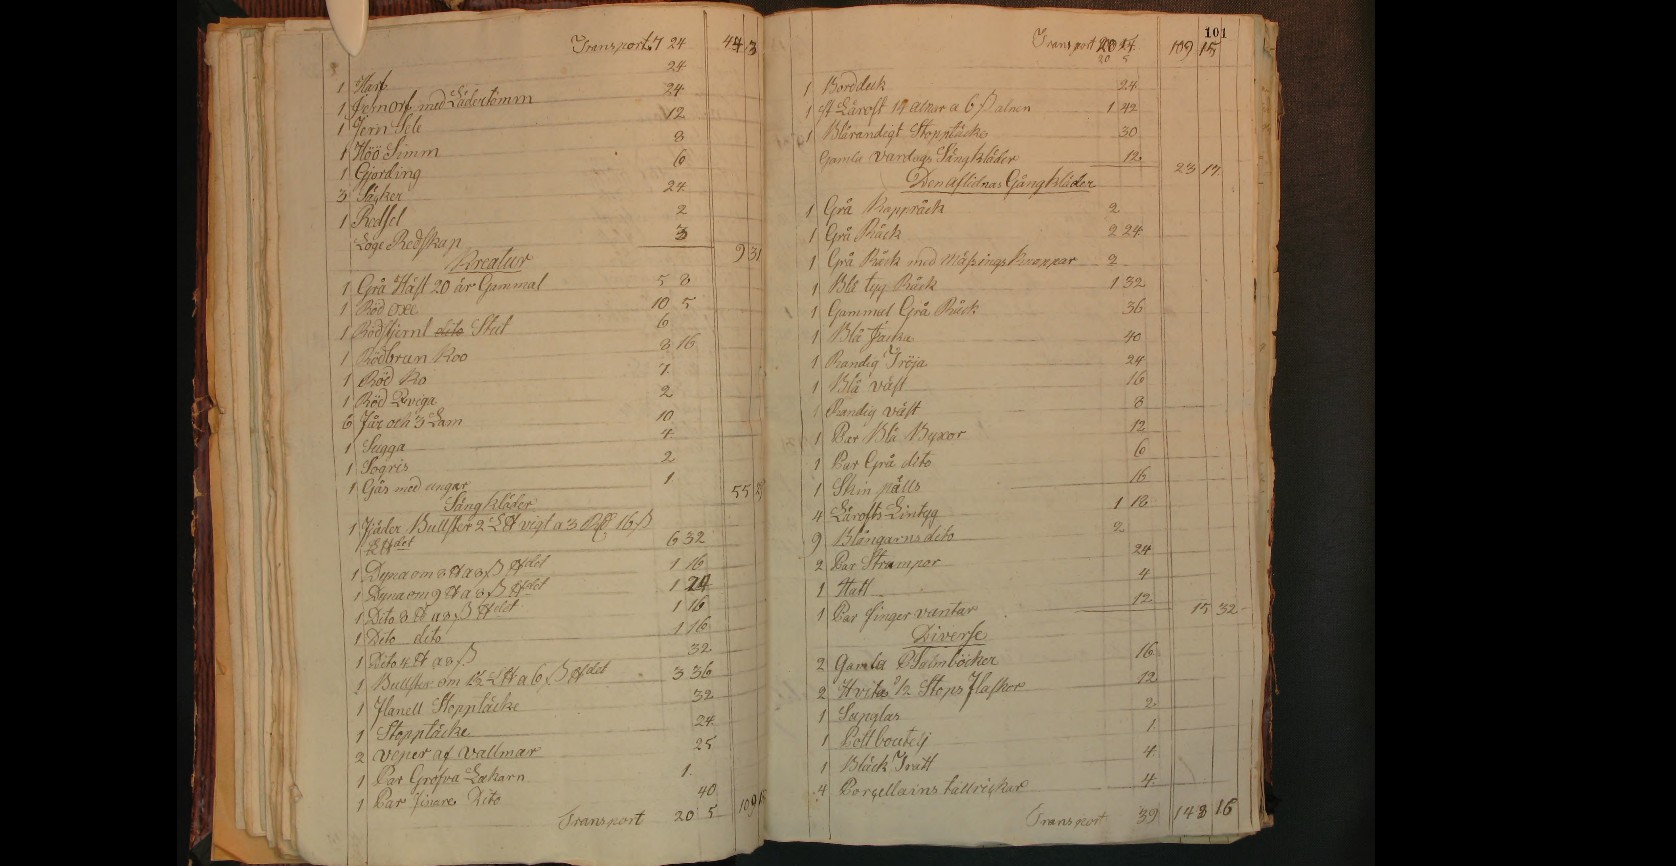 Transport 7 24 44 3
1 Harf 24
1 Jernorf med Lädertömm 24
1 Jern Sele 12
1 Höö Simm 8
1 Gjording 6
3 Säcker 24
1 Redsel 2
Loge Redskap 3 9 31
Kreatur
1 Grå Häst 20 år Gammal 5 8
1 Röd oxe 10 5
1 Rödstjernt Stut 6
1 Rödbrun Koo 8 16
1 Röd Ko 7
1 Röd Qviga 2
6 Får och 3 Lam 10
1 Sugga 4
1 Sogris 2
1 Gås med ungar 1
Sängkläder 55
1 Fjäder Bullster 2 L℔ vigt a 3 16 ß
L℔det 6 32
1 Dyna om 8 ℔ a 8 ß ℔det 1 16
1 Dyna om 9 ℔ a 8 ß ℔det 1 24
1 Dito 8 ℔ a 8 ß ℔det 1 16
1 Dito dito 1 16
1 Dito 4 ℔ a 8 ß 32
1 Bullster om L℔ a 6 ß ℔det 3 36
1 Flanell Stopptäcke 32
1 Stopptäcke 24
2 Veper af Vallmar 25
1 Par Grofva Lakarn 1
1 Par finare Dito 40
Transport 20 5 109 15
101
Transport 20 5 109 15
1 Bordduk 24
1 Låroft 14 alnar a 6 ß alnen 1 42
1 Blårandigt Stopptäcke 30
Gamla Vardags Sängkläder 12 23 17
Den aflidnas Gångkläder
1 Grå Kappråck 2
1 Grå Råck 2 24
1 Grå Råck med Mässings Knappar 2
1 Blå tyg Råck 1 32
1 Gammal Grå Råck 36
1 Blå Jacka 40
1 Randig Tröja 24
1 Blå väst 16
1 Randig väst 8
1 Par Blå Byxor 12
1 Par Grå dito 6
1 Skin pälls 16
4 Lårofts Lintyg 1 16
9 Blångarns dito 2
2 Par Strumpor 24
1 Hatt 4
1 Par finger vantar 12 15 32
Diverse
2 Gamla Psalmböcker 16
2 Hvita 1/2 Stops Flaskor 12
1 Supglas 2
1 Pottboutelj 1
1 Bläck Tratt 4
4 Porcellains tallrickar 4
Transport 39 148 16